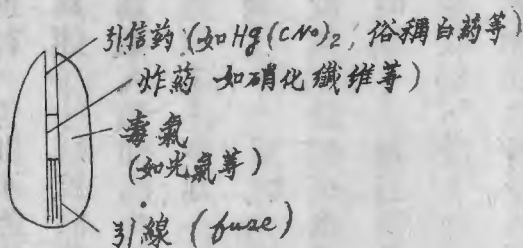 引信药 (如Hg(CNO)2, 俗稱白药等)
炸药 如硝化纖维等)
毒氣
(如光氣等)
引線 (fuze)